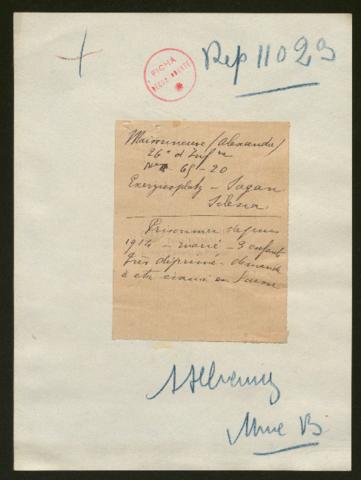 Rep 11023
FICHA
Maisonneuve (Alexandre)
26e d'Infie
No 65-20
Exerzierplatz - Sagan
Silésie
Prisonnier depuis
1914 - marié - 3 enfants
très déprimé - demande
à être évacué en Suisse
Mme B.